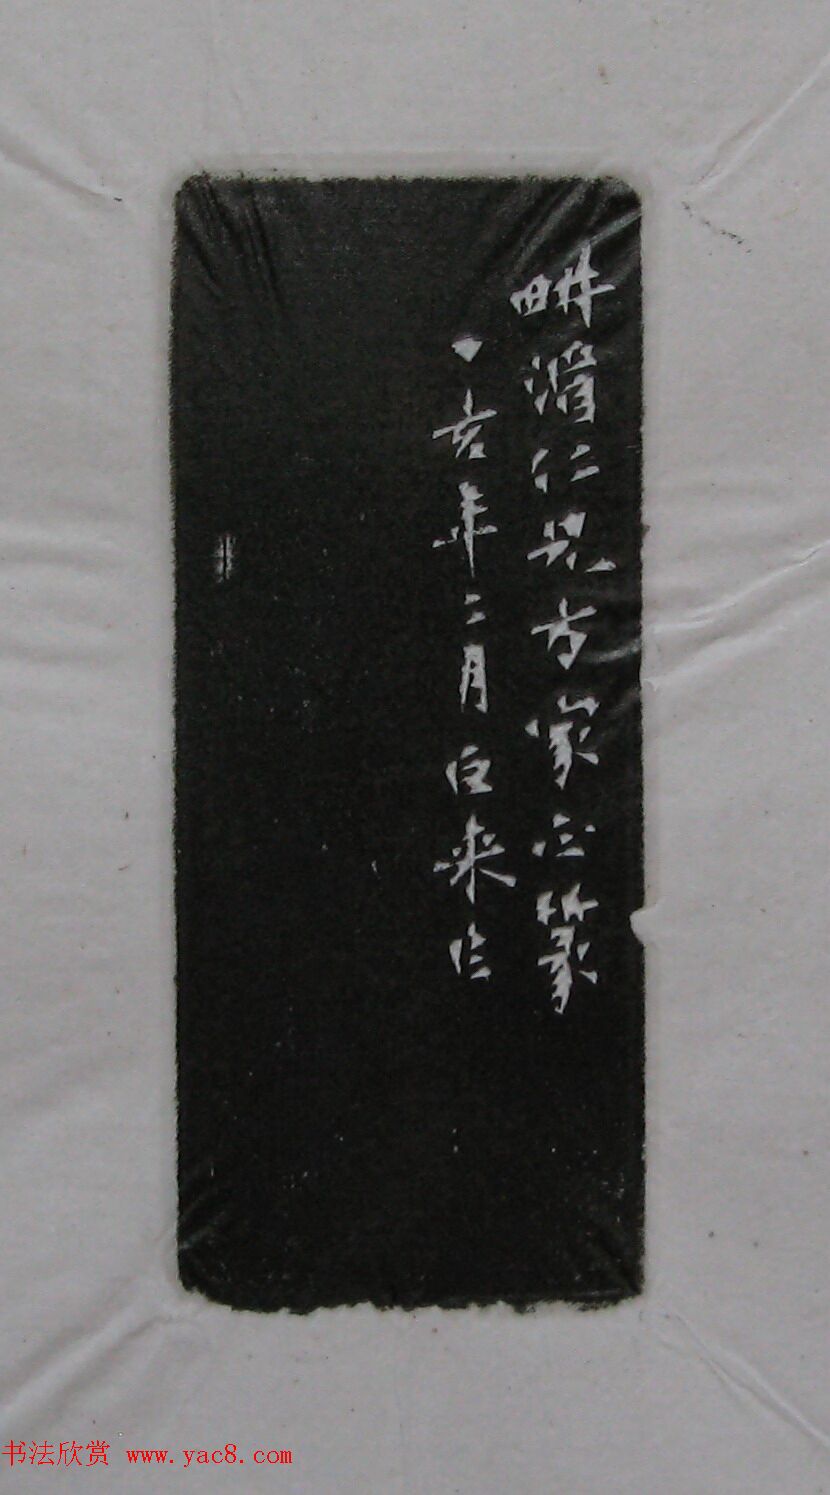 畊湄仁兄方家正篆
亥年二月白来作
书法欣赏 www.yac8.com